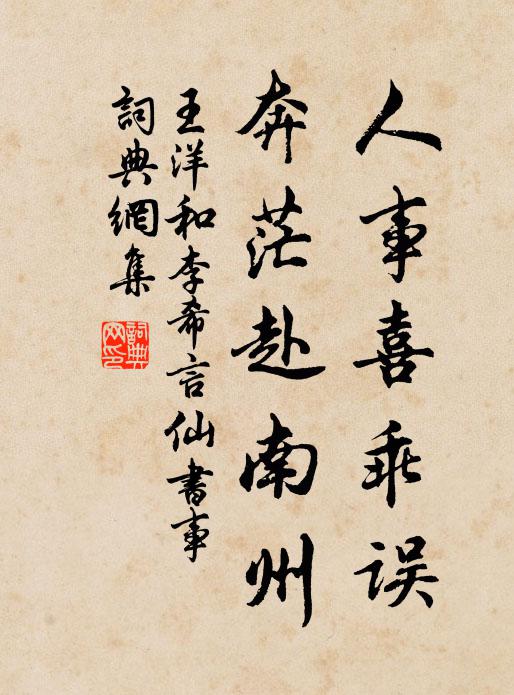 人事喜乖误
奔茫赴南州
王洋和李希言仙書事
詞典網集
詞典网印